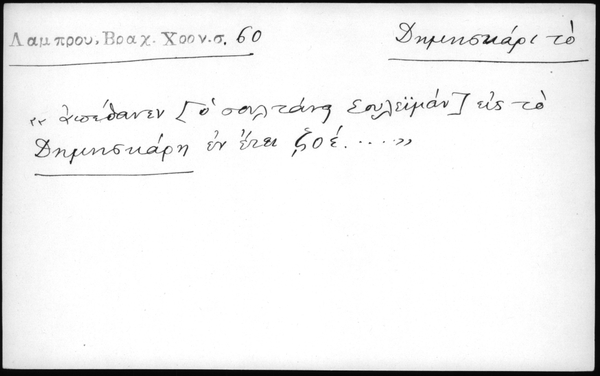 Λαμπρου, Βραχ. Χρον. σ. 60
Δημησκάρι τὸ
"ἀπέθανεν [ὁ σουλτάνος Σουλεϊμάν] εἰς τὸ
Δημησκάρη ἐν ἔτει ζοέ....."